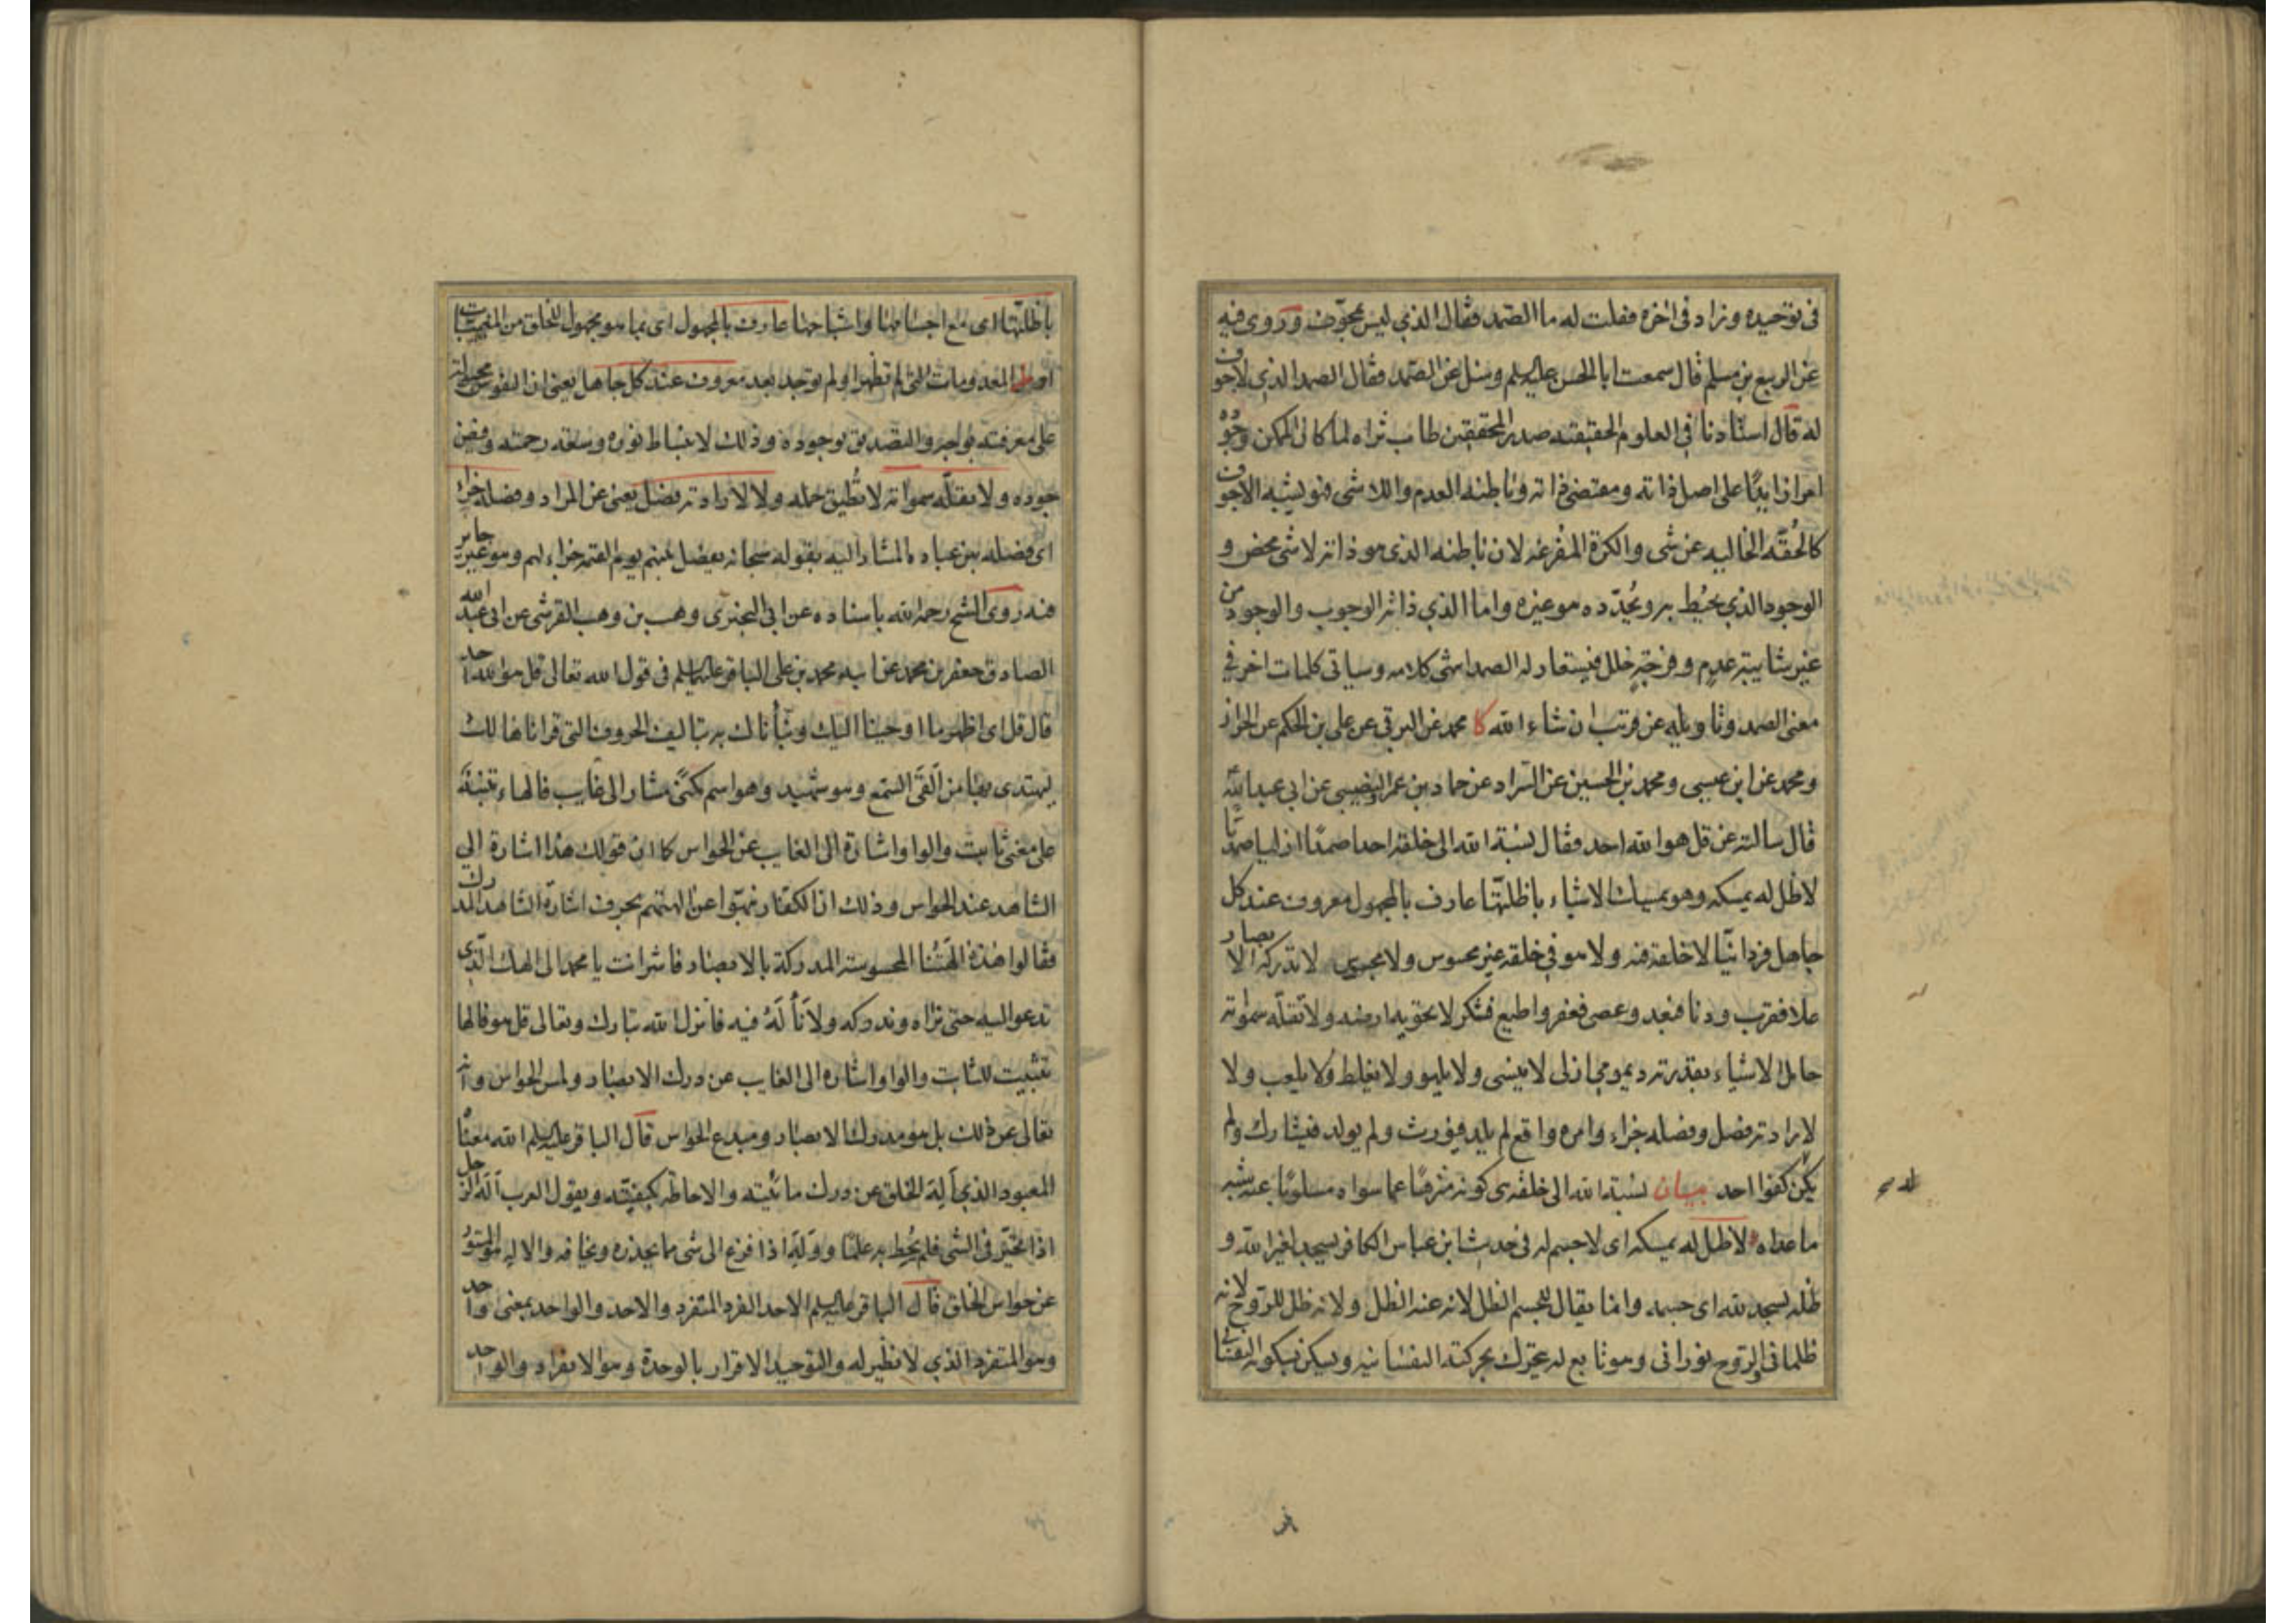 في توحيده وزاد في اخره فقلت له ما الصمد فقال الذي ليس بمجوف وروى فيه
عن الربيع بن مسلم قال سمعت ابا الحسن عليه السلم وسئل عن الصمد فقال الصمد الذي لا جوف
له قال استادنا في العلوم الحقيقيه صدر المحققين طاب ثراه لما كان الممكن وجوده
امرا زايدا على اصل ذاته ومقتضى ذاته وباطنه العدم واللاشى فهو يشبه الاجوف
كالحقه الخاليه عن شى والكرة المفرغه لان باطنه الذي هو ذاته لا شى محض و
الوجود الذي يحيط به ويحدده هو غيره واما الذي ذاته الوجوب والوجود من
غير شايبة عدم وفرجة خلل فيستعار له الصمد انتهى كلامه وسياتى كلمات اخر في
معنى الصمد وتاويله عن قريب ان شاء الله كا محمد عن البرقي عن علي بن الحكم عن الخراز
ومحمد عن ابن عيسى ومحمد بن الحسين عن السراد عن حماد بن عمرو النصيبي عن ابي عبد الله ع
قال سالته عن قل هو الله احد فقال نسبة الله الى خلقه احدا صمدا ازليا صمديا
لا ظل له يمسكه وهو يمسك الاشياء باظلتها عارف بالمجهول معروف عند كل
جاهل فردانيا لا خلقه فيه ولا هو في خلقه غير محسوس ولا مجسوس لا تدركه الابصار
علا فقرب ودنا فبعد وعصى فغفر واطيع فشكر لا تحويه ارضه ولا تقله سمواته
حامل الاشياء بقدرته ديمومي ازلى لا ينسى ولا يلهو ولا يغلط ولا يلعب ولا
لارادته فصل وفصله جزاء وامره واقع لم يلد فيورث ولم يولد فيشارك ولم
يكن له كفوا احد بيان نسبة الله الى خلقه اى كونه منزها عما سواه مسلوبا عنه شبه
ما عداه لا ظل له يمسكه اى لا جسم له فى حديث ابن عباس الكافر يسجد لغير الله و
ظله يسجد لله اى جسمه وانما يقال للجسم الظل لانه عنه الظل ولانه ظل للروح لانه
ظلمانى والروح نورانى وهو تابع له يتحرك بحركته النفسانيه ويسكن بسكونه النفسانى
باظلتها اى مع اجسامها واشباحها عارف بالمجهول اى بما هو مجهول للخلق من المغيبات
او المعدومات التى لم تظهر او لم توجد بعد معروف عند كل جاهل يعنى ان النفوس مجبولة
على معرفته بوجه والتصديق بوجوده وذلك لانبساط نوره وسعة رحمته وفيض
جوده ولا تقله سمواته لا تطيق حمله ولا لارادته فصل يعنى عن المراد وفصله جزاء
اى فصله بين عباده المشار اليه بقوله سبحانه يفصل بينهم يوم القيمه جزاء لهم وهو غير جاير
فيه روى الشيخ رحمه الله باسناده عن ابي البختري وهب بن وهب القرشى عن ابى عبد الله
الصادق جعفر بن محمد عن ابيه محمد بن على الباقر عليهم السلم فى قول الله تعالى قل هو الله احد
قال قل اى اظهر ما اوحينا اليك ونبأناك به بتاليف الحروف التى قراناها لك
ليهتدى بها من القى السمع وهو شهيد وهو اسم مكنى مشار الى غايب فالهاء تنبيه
على معنى ثابت والواو اشارة الى الغايب عن الحواس كما ان قولك هذا اشارة الى
الشاهد عند الحواس وذلك ان الكفار نبهوا عن الهتهم بحرف اشارة الشاهد المدرك
فقالوا هذه الهتنا المحسوسة المدركة بالابصار فاشر انت يا محمد الى الهك الذى
تدعو اليه حتى نراه وندركه ولا نأله فيه فانزل الله تبارك وتعالى قل هو فالها
تثبيت للثابت والواو اشارة الى الغايب عن درك الابصار ولمس الحواس وانه
تعالى عن ذلك بل هو مدرك الابصار ومبدع الحواس قال الباقر عليه السلم الله معناه
المعبود الذى أله الخلق عن درك مائيته والاحاطه بكيفيته ويقول العرب أله الرجل
اذا تحير فى الشى فلم يحط به علما ووله اذا فزع الى شى مما يحذره ويخافه والاله هو المستور
عن حواس الخلق قال الباقر عليه السلم الاحد الفرد المتفرد والاحد والواحد بمعنى واحد
وهو المتفرد الذي لا نظير له والتوحيد الاقرار بالوحدة وهو الانفراد والواحد